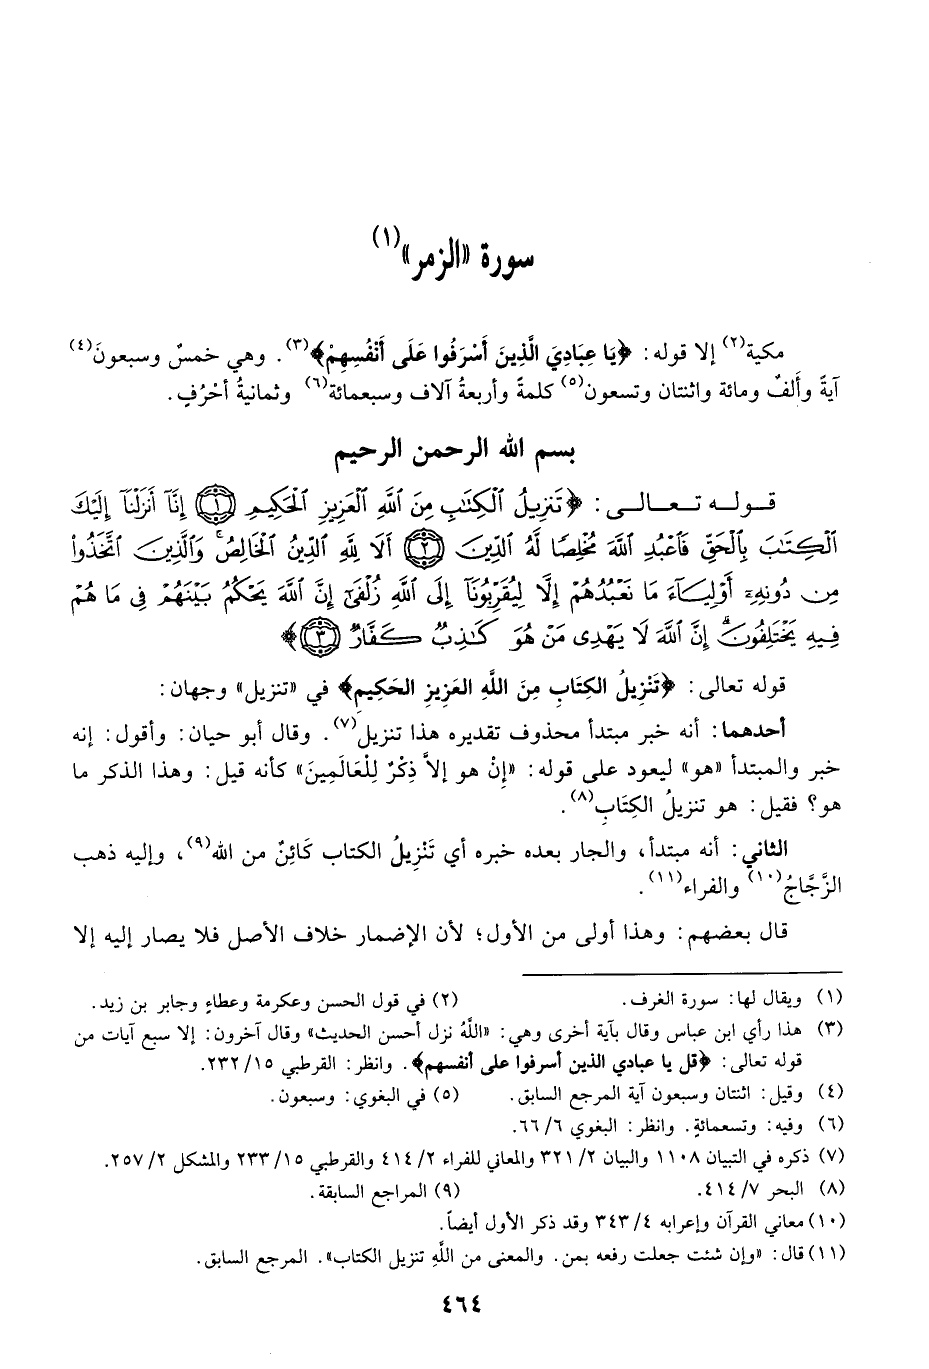 سورة «الزمر»(١)
مكية(٢) إلا قوله: ﴿يَا عِبَادِيَ الَّذِينَ أَسْرَفُوا عَلَى أَنْفُسِهِمْ﴾(٣). وهي خمسٌ وسبعونَ(٤)
آيةً وأَلفٌ ومائة واثنتان وتسعون(٥) كلمةً وأربعةُ آلاف وسبعمائة(٦) وثمانيةُ أحْرُفٍ.
بسم الله الرحمن الرحيم
قـولـه تـعـالـى: ﴿تَنزِيلُ ٱلْكِتَٰبِ مِنَ ٱللَّهِ ٱلْعَزِيزِ ٱلْحَكِيمِ ١ إِنَّآ أَنزَلْنَآ إِلَيْكَ
ٱلْكِتَٰبَ بِٱلْحَقِّ فَٱعْبُدِ ٱللَّهَ مُخْلِصًا لَّهُ ٱلدِّينَ ٢ أَلَا لِلَّهِ ٱلدِّينُ ٱلْخَالِصُ ۚ وَٱلَّذِينَ ٱتَّخَذُوا
مِن دُونِهِۦٓ أَوْلِيَآءَ مَا نَعْبُدُهُمْ إِلَّا لِيُقَرِّبُونَآ إِلَى ٱللَّهِ زُلْفَىٰٓ إِنَّ ٱللَّهَ يَحْكُمُ بَيْنَهُمْ فِى مَا هُمْ
فِيهِ يَخْتَلِفُونَ ۗ إِنَّ ٱللَّهَ لَا يَهْدِى مَنْ هُوَ كَٰذِبٌ كَفَّارٌ ٣﴾
قوله تعالى: ﴿تَنْزِيلُ الكِتَابِ مِنَ اللَّهِ العَزِيزِ الحَكِيمِ﴾ في «تنزيل» وجهان:
أحدهما: أنه خبر مبتدأ محذوف تقديره هذا تنزيل(٧). وقال أبو حيان: وأقول: إنه
خبر والمبتدأ «هو» ليعود على قوله: «إِنْ هو إلاَّ ذِكْرٌ لِلْعَالَمِينَ» كأنه قيل: وهذا الذكر ما
هو؟ فقيل: هو تنزيلُ الكِتَابِ(٨).
الثاني: أنه مبتدأ، والجار بعده خبره أي تَنْزِيلُ الكتاب كَائِنٌ من الله(٩)، وإليه ذهب
الزَّجَّاجُ(١٠) والفراء(١١).
قال بعضهم: وهذا أولى من الأول؛ لأن الإضمار خلاف الأصل فلا يصار إليه إلا
(١) ويقال لها: سورة الغرف. (٢) في قول الحسن وعكرمة وعطاء وجابر بن زيد.
(٣) هذا رأي ابن عباس وقال بآية أخرى وهي: «اللَّهُ نزل أحسن الحديث» وقال آخرون: إلا سبع آيات من
قوله تعالى: ﴿قل يا عبادي الذين أسرفوا على أنفسهم﴾. وانظر: القرطبي ١٥/ ٢٣٢.
(٤) وقيل: اثنتان وسبعون آية المرجع السابق. (٥) في البغوي: وسبعون.
(٦) وفيه: وتسعمائة. وانظر: البغوي ٦/ ٦٦.
(٧) ذكره في التبيان ١١٠٨ والبيان ٢/ ٣٢١ والمعاني للفراء ٢/ ٤١٤ والقرطبي ١٥/ ٢٣٣ والمشكل ٢/ ٢٥٧.
(٨) البحر ٧/ ٤١٤. (٩) المراجع السابقة.
(١٠) معاني القرآن وإعرابه ٤/ ٣٤٣ وقد ذكر الأول أيضاً.
(١١) قال: «وإن شئت جعلت رفعه بمن. والمعنى من اللَّهِ تنزيل الكتاب». المرجع السابق.
٤٦٤